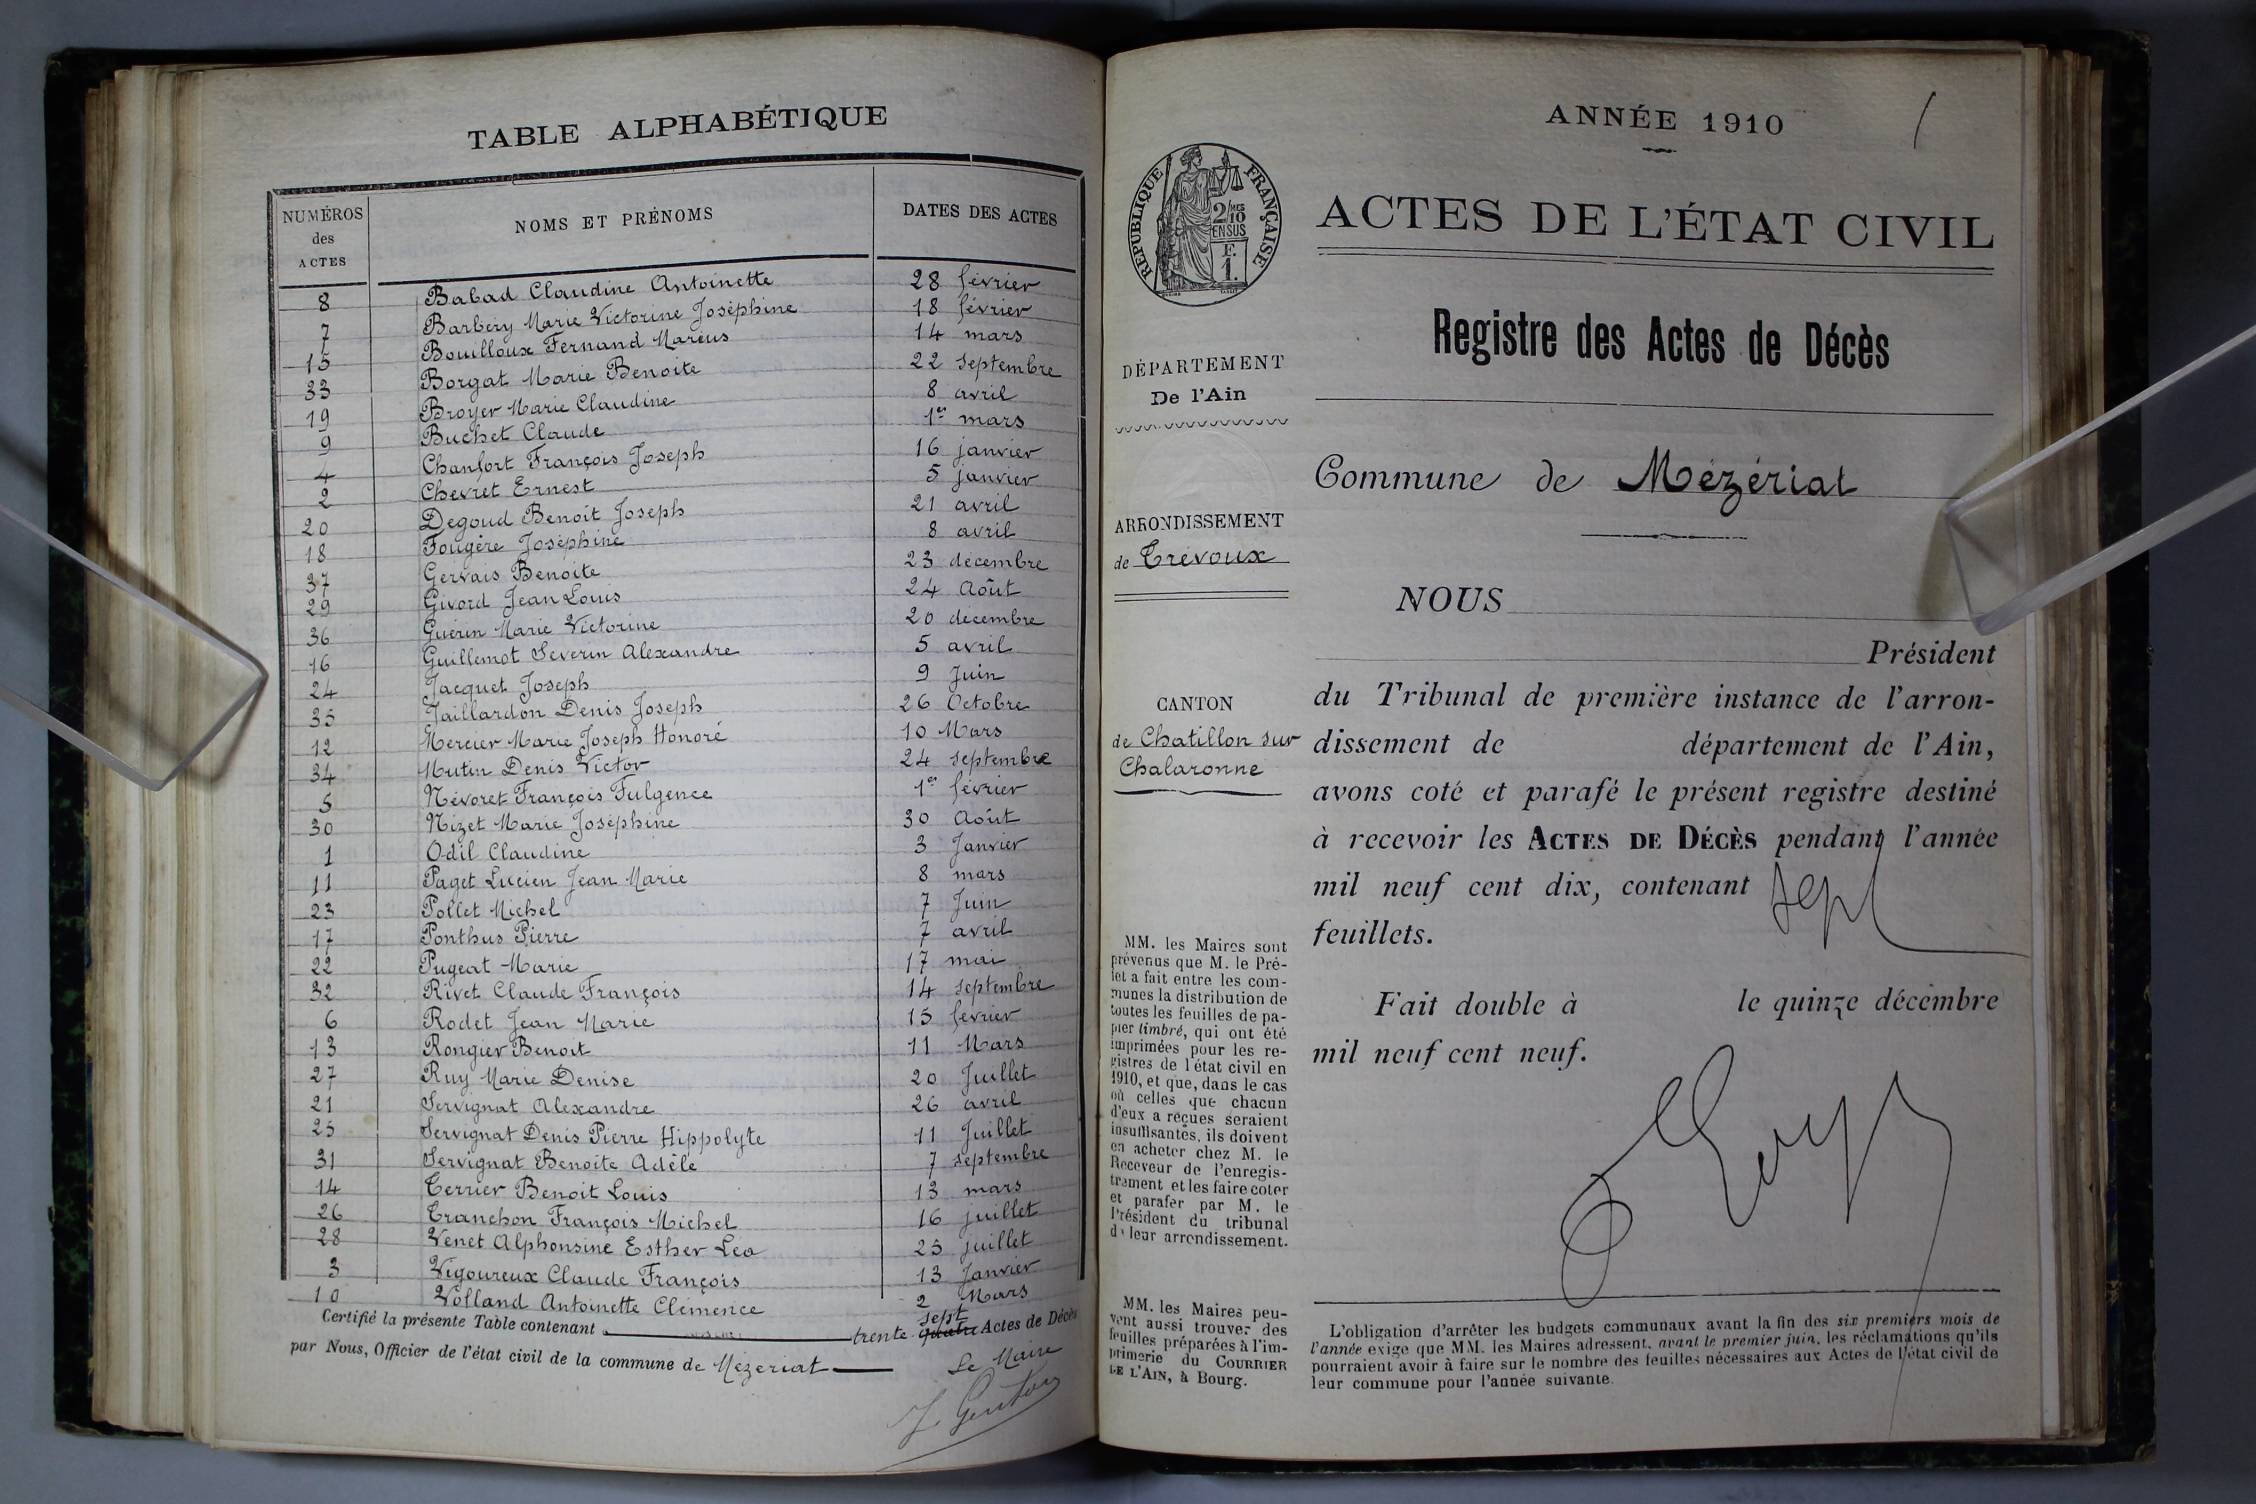 TABLE ALPHABÉTIQUE
NUMÉROS des ACTES NOMS ET PRÉNOMS DATES DES ACTES
8 Babad Claudine Antoinette 28 février
7 Barbery Marie Victorine Joséphine 18 février
15 Bouilloux Fernand Marius 14 mars
33 Borgat Marie Benoite 22 septembre
19 Broyer Marie Claudine 8 avril
9 Buchet Claude 1er mars
4 Chanfort François Joseph 16 janvier
2 Chevret Ernest 5 janvier
20 Degoud Benoit Joseph 21 avril
18 Fougère Joséphine 8 avril
37 Gervais Benoite 23 décembre
29 Givord Jean Louis 24 Août
36 Guérin Marie Victorine 20 décembre
16 Guillemot Severin Alexandre 5 avril
24 Jacquet Joseph 9 Juin
35 Jaillardon Denis Joseph 26 Octobre
12 Mercier Marie Joseph Honoré 10 Mars
34 Mutin Denis Victor 24 septembre
5 Névoret François Fulgence 1er février
30 Nizet Marie Joséphine 30 Août
1 Odil Claudine 3 Janvier
11 Paget Lucien Jean Marie 8 mars
23 Pollet Michel 7 Juin
17 Ponthus Pierre 7 avril
22 Pugeat Marie 17 mai
32 Rivet Claude François 14 septembre
6 Rodet Jean Marie 15 février
13 Rongier Benoit 11 Mars
27 Ruy Marie Denise 20 Juillet
21 Servignat Alexandre 26 avril
25 Servignat Denis Pierre Hippolyte 11 Juillet
31 Servignat Benoite Adèle 7 septembre
14 Terrier Benoit Louis 13 mars
26 Tranchon François Michel 16 juillet
28 Venet Alphonsine Esther Léa 25 juillet
3 Vigoureux Claude François 13 Janvier
10 Volland Antoinette Clémence 2 Mars
sept
Certifié la présente Table contenant trente quatre Actes de Décès
par Nous, Officier de l'état civil de la commune de Mézériat
Le Maire
ANNÉE 1910
1
RÉPUBLIQUE FRANÇAISE
2/MES
10
EN SUS
F.
1.
ACTES DE L'ÉTAT CIVIL
Registre des Actes de Décès
DÉPARTEMENT
De l'Ain
Commune de Mézériat
ARRONDISSEMENT
de Trévoux
CANTON
de Chatillon sur
Chalaronne
NOUS
Président
du Tribunal de première instance de l'arron-
dissement de département de l'Ain,
avons coté et parafé le présent registre destiné
à recevoir les ACTES DE DÉCÈS pendant l'année
mil neuf cent dix, contenant sept
feuillets.
Fait double à le quinze décembre
mil neuf cent neuf.
MM. les Maires sont
prévenus que M. le Pré-
fet a fait entre les com-
munes la distribution de
toutes les feuilles de pa-
pier timbré, qui ont été
imprimées pour les re-
gistres de l'état civil en
1910, et que, dans le cas
où celles que chacun
d'eux a reçues seraient
insuffisantes, ils doivent
en acheter chez M. le
Receveur de l'enregis-
trement et les faire coter
et parafer par M. le
Président du tribunal
de leur arrondissement.
MM. les Maires peu-
vent aussi trouver des
feuilles préparées à l'im-
primerie du COURRIER
DE L'AIN, à Bourg.
L'obligation d'arrêter les budgets communaux avant la fin des six premiers mois de
l'année exige que MM. les Maires adressent, avant le premier juin, les réclamations qu'ils
pourraient avoir à faire sur le nombre des feuilles nécessaires aux Actes de l'état civil de
leur commune pour l'année suivante.